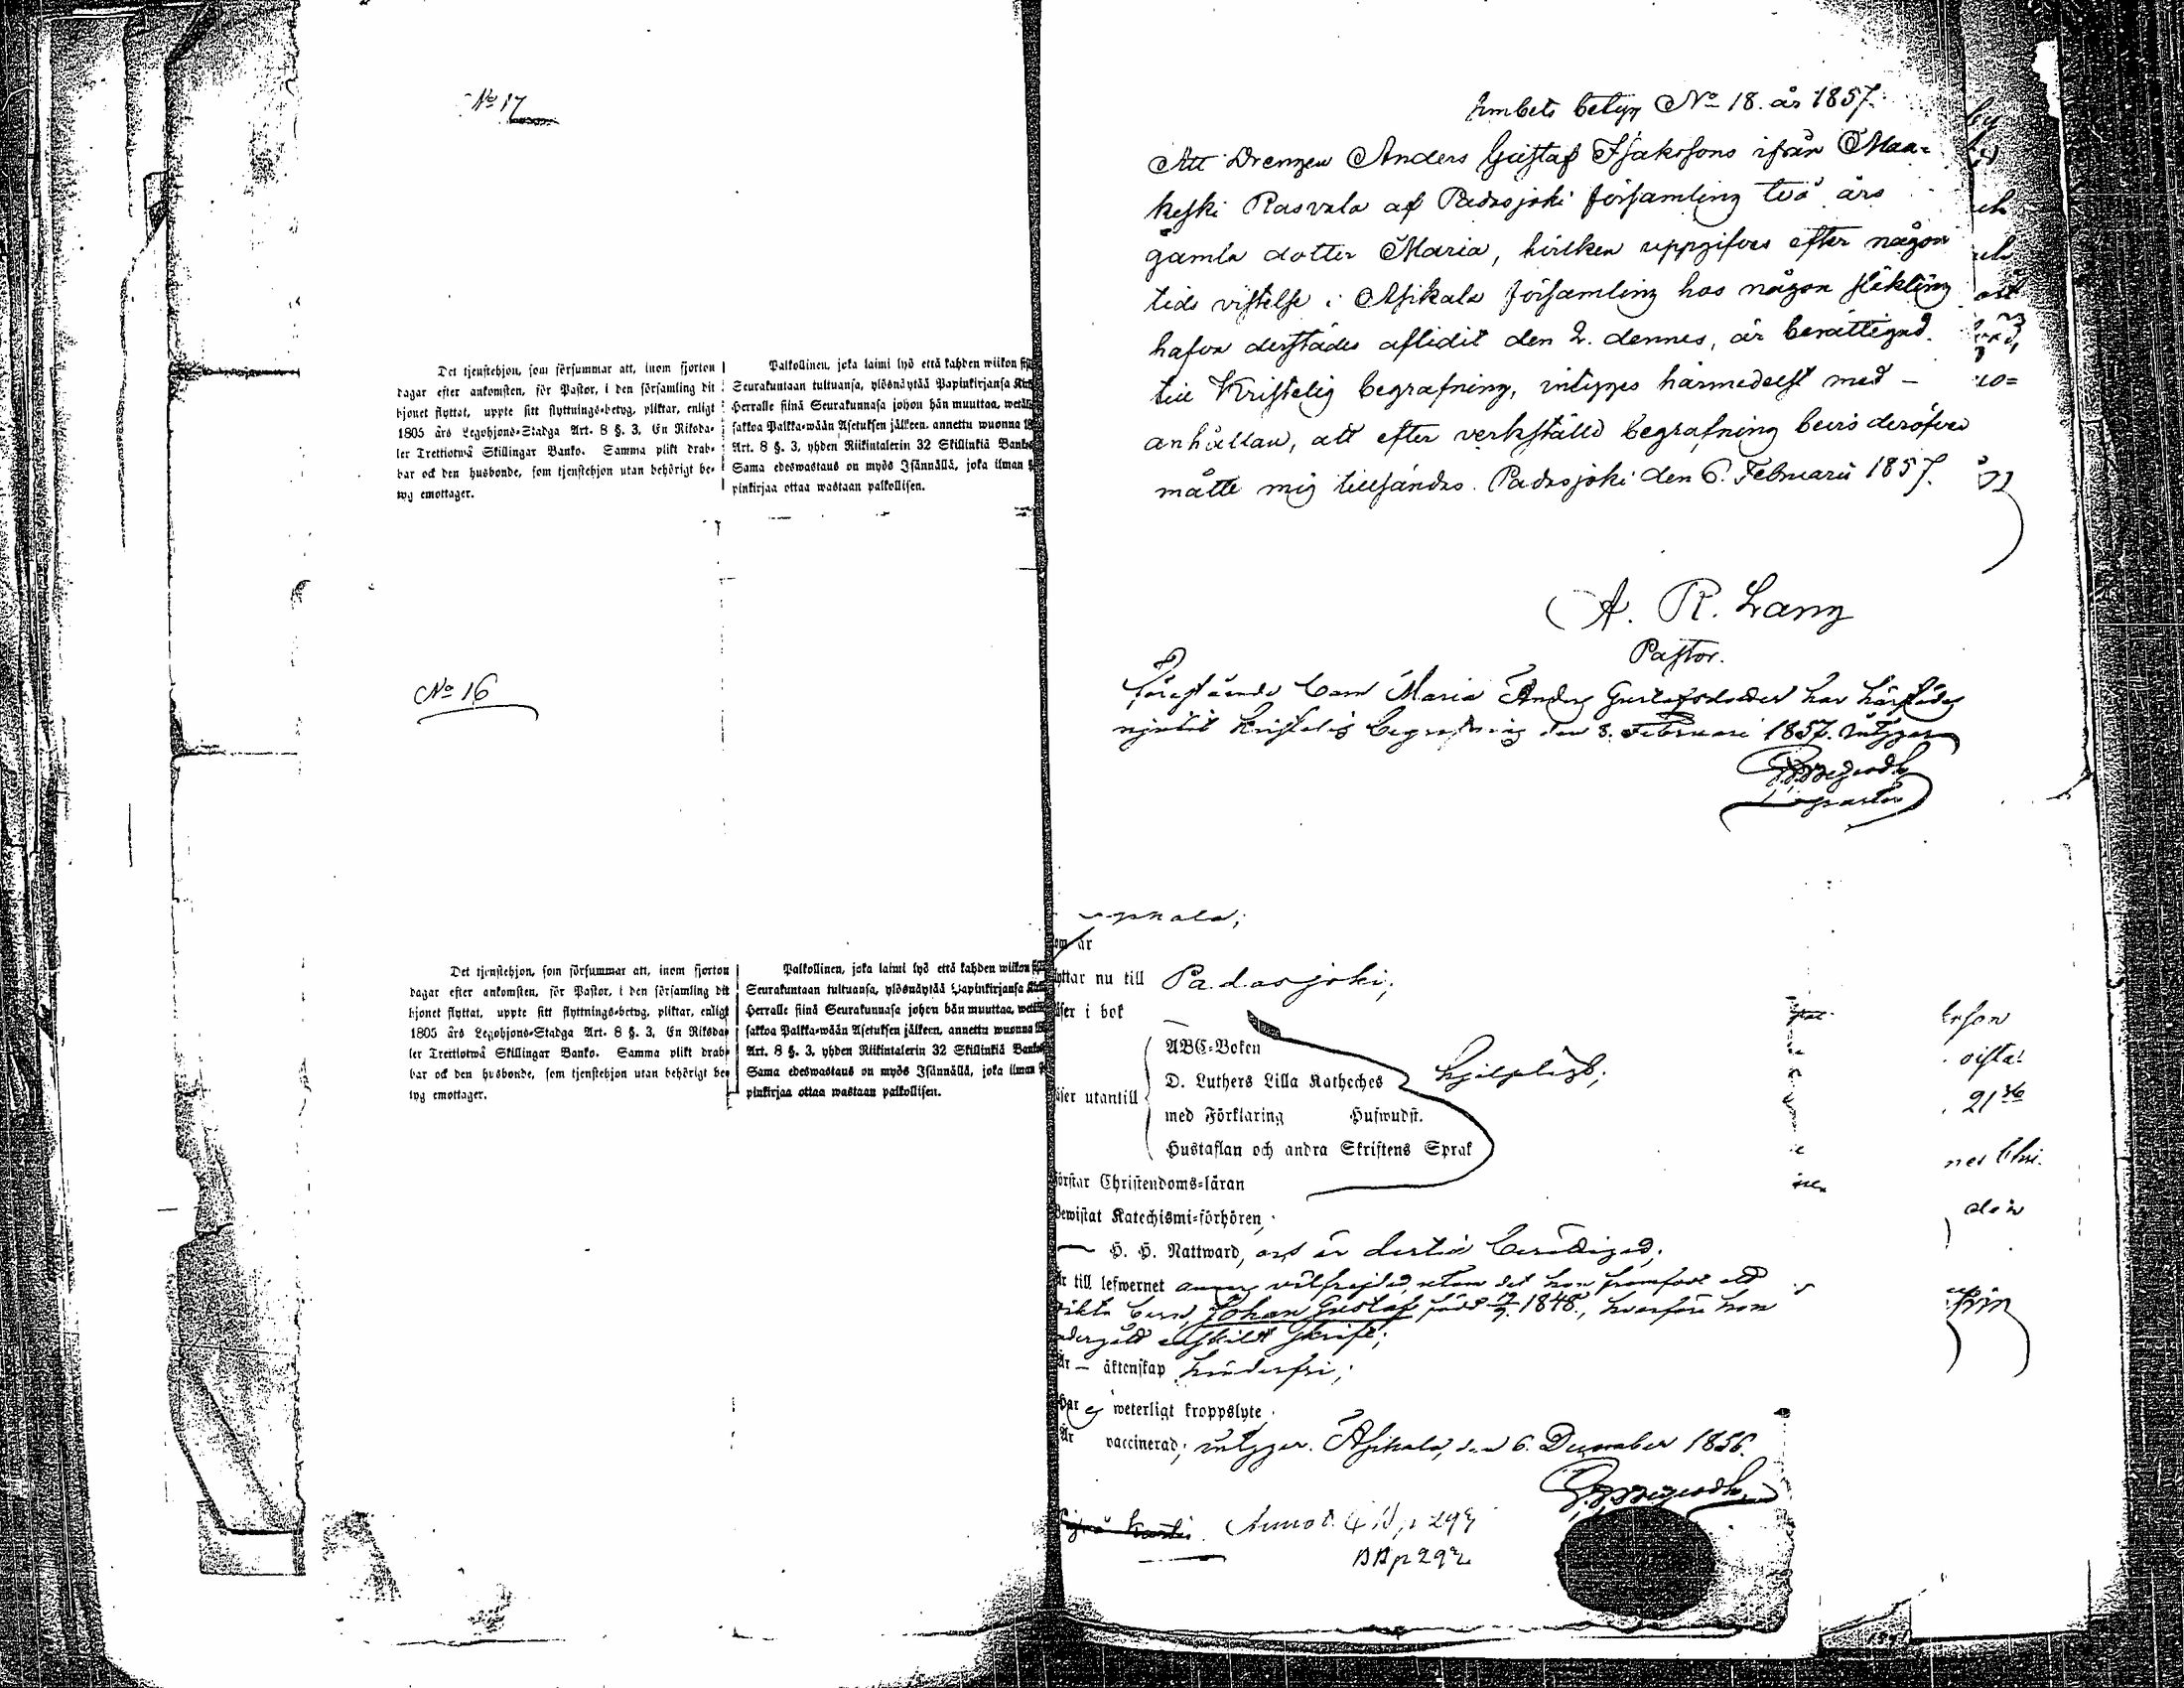 No 17
Det tjenstehjon, som försummar att, inom fjorton
dagar efter ankomsten, för Pastor, i den församling dit
hjonet flyttat, uppte sitt flyttnings-betyg, pliktar, enligt
1805 års Legohjons-Stadga Art. 8 §. 3, En Riksda-
ler Trettiotwå Skillingar Banko. Samma plikt drab-
bar ock den husbonde, som tjenstehjon utan behörigt be-
tyg emottager.
Palkollinen, joka laimi lyö että kahden wiikon
Seurakuntaan tultuansa, ylösnäytää Papinkirjansa
Herralle siinä Seurakunnasa johon hän muuttaa,
sakkoa Palkka-wään Asetuksen jälkeen, annettu wuonna
Art. 8 §. 3, yhden Riikintalerin 32 Skillinkiä
Sama edeswastaus on myös Isännällä, joka ilman
pinkirjaa ottaa wastaan palkollisen.
No 16
Det tjenstehjon, som försummar att, inom fjorton
dagar efter ankomsten, för Pastor, i den församling dit
hjonet flyttat, uppte sitt flyttnings-betyg, pliktar, enligt
1805 års Legohjons-Stadga Art. 8 §. 3, En Riksda-
ler Trettiotwå Skillingar Banko. Samma plikt drab-
bar ock den husbonde, som tjenstehjon utan behörigt be-
tyg emottager.
Palkollinen, joka laimi lyö että kahden wiikon
Seurakuntaan tultuansa, ylösnäytää Papinkirjansa
Herralle siinä Seurakunnasa johon hän muuttaa,
sakkoa Palkka-wään Asetuksen jälkeen, annettu wuonna
Art. 8 §. 3, yhden Riikintalerin 32 Skillinkiä
Sama edeswastaus on myös Isännällä, joka ilman
pinkirjaa ottaa wastaan palkollisen.
Embets betyg No 18. år 1857.
Att Drengen Anders Gustaf Isakssons ifrån Maa-
keski Rasvala af Padasjoki församling två års
gamla dotter Maria, hvilken uppgifves efter någon
tids vistelse i Asikala församling hos någon släkting
hafva derstädes aflidit den 2. dennes, är berättigad
till Kristelig begrafning, intygges härmedelst med –
anhållan, att efter verkställd begrafning bevis deröfver
måtte mig tillsändas. Padasjoki den 6. Februarii 1857.
A. R. Lang
Pastor.
Förestående barn Maria Anders Gustafsdotter har härstädes
njutit kristelig begrafning den 8. Februari 1857. Intygar
pastor
om är
yttar nu till Padasjoki;
äser i bok
ABC-Boken
D. Luthers Lilla Katheches
med Förklaring Hufwudst.
Hustaflan och andra Skriftens Språk
hjelpligt;
äser utantill
örstår Christendoms-läran
Bewistat Katechismi-förhören,
H. H. Nattward, och är dertill berättigad;
Är till lefwernet annars välfrejdad, utom det hon framfödt ett
oäkta barn, Johan Gustaf, född 1848., hvarföre hon
undergått enskildt skrift;
Är – äktenskap hinderfri;
Har ej weterligt kroppslyte,
Är vaccinerad; intygar. Asikala, den 6. December 1856.
Annot.